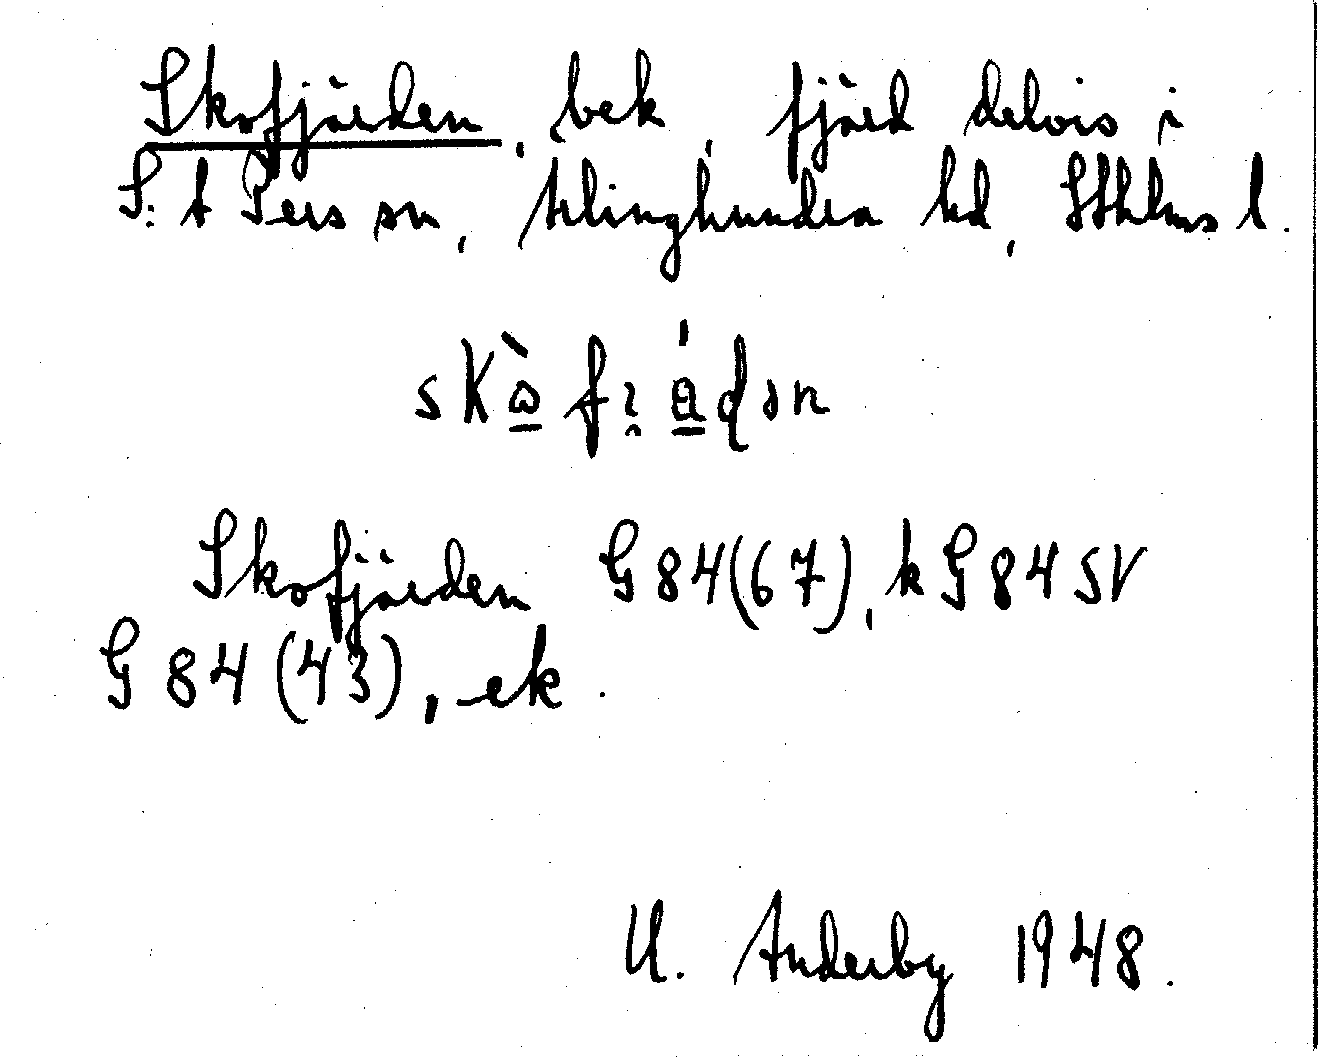 Skofjärden, bek, fjärd delvis i
S:t Pers sn, Ärlinghundra hd, Sthlms l.
skꞷ̀fi̯ádən
Skofjärden G84(67), kG84SV
G84(43), ek.
U. Anderby 1948.